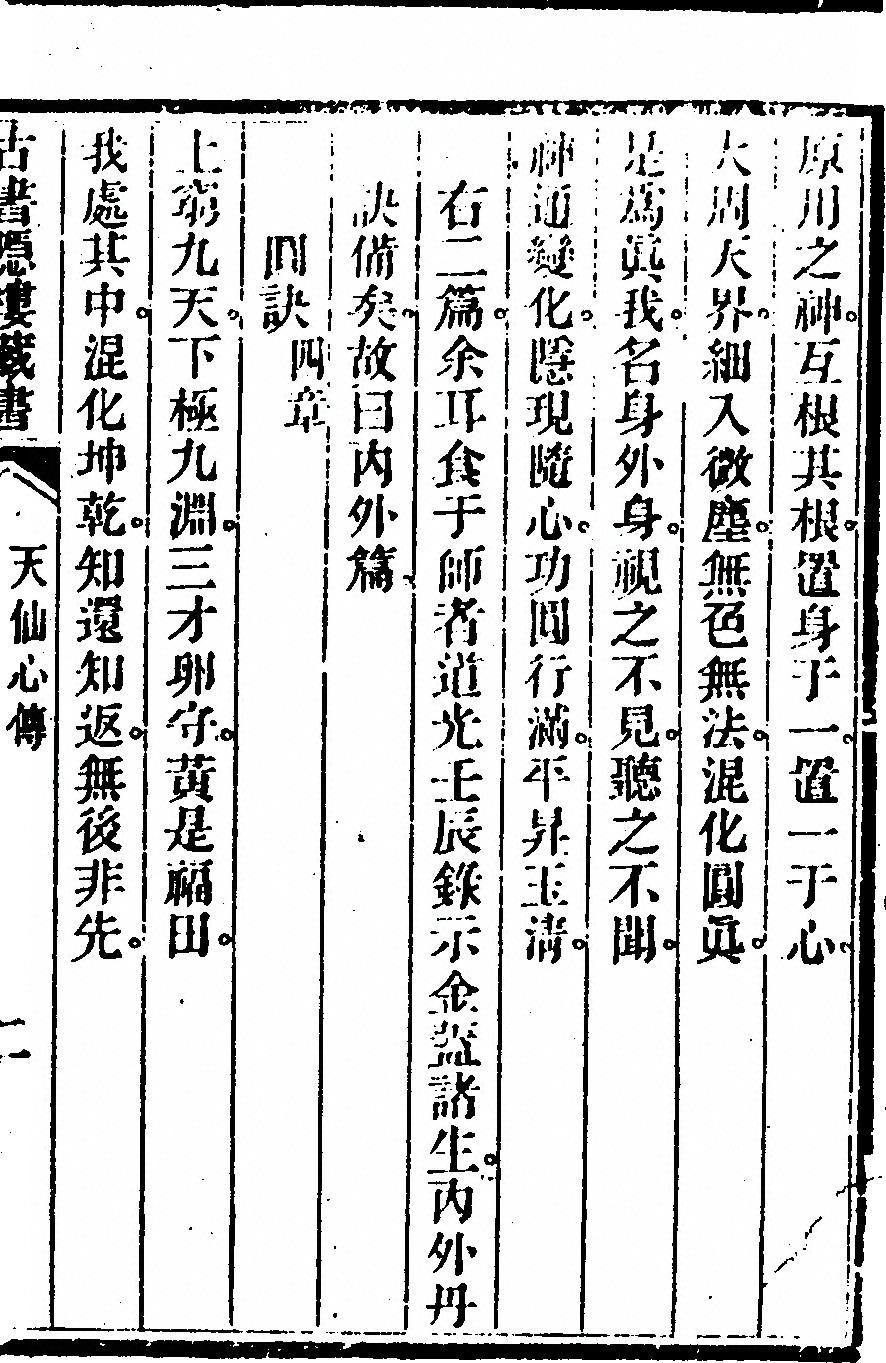 原用之神。互根其根。置身于一。置一于心。
大周天界。細入微塵。無色無法。混化圓眞。
是爲眞我。名身外身。視之不見。聽之不聞。
神通變化。隱現隨心。功圓行滿。平昇玉淸。
右二篇。余耳食于師者道光壬辰錄示金蓋諸生。內外丹
訣備矣。故曰內外篇。
圓訣四章
上窮九天。下極九淵。三才卵守。黃是福田。
我處其中。混化坤乾。知還知返。無後非先。
古書隱樓藏書
天仙心傳
二